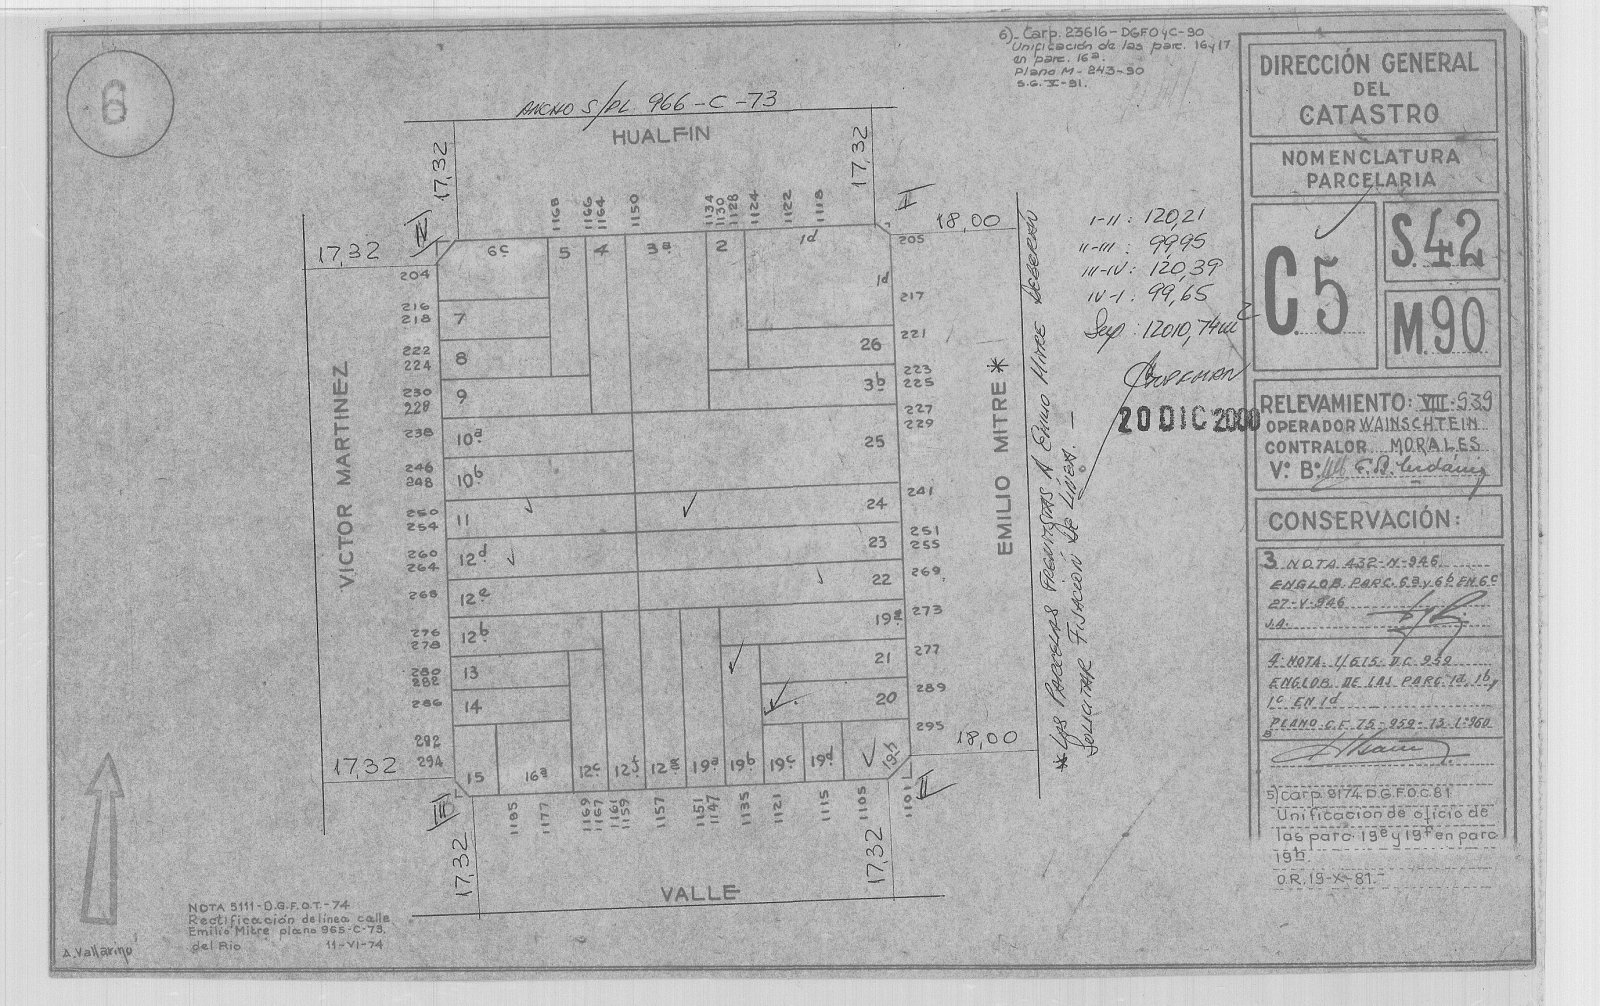 6
ANCHO S/PL 966-C-73
HUALFIN
17,32
17,32
6)- Carp. 23616-DGFOyC-90
Unificación de las parc. 16y17
en parc. 16ª.
Plano M-243-90
S.G. X-91.
DIRECCIÓN GENERAL
DEL
CATASTRO
NOMENCLATURA
PARCELARIA
C.5
S.42
M.90
RELEVAMIENTO: VIII-939
OPERADOR WAINSCHTEIN
CONTRALOR MORALES
V.º B.º
CONSERVACIÓN:
3 NOTA 432-N-946.
ENGLOB. PARC. 6a y 6b EN 6c
27-V-946
J.A.
4-NOTA. 4615-D.C. 959
ENGLOB. DE LAS PARC. 1a, 1b,
1c EN 1d
PLANO C.F. 75-959-13-1-960
5) Carp. 9174 D.G.F.O.C 81
Unificación de oficio de
las parc. 19e y 19f en parc.
19h.
O.R. 19-X-81.-
1168
1166
1164
1150
1134
1130
1128
1124
1122
1118
IV
II
17,32
18,00
6c
5
4
3a
2
1d
1d
204
216
218
222
224
230
228
238
246
248
250
254
260
264
268
276
278
280
282
286
292
294
7
8
9
10a
10b
11
12d
12e
12b
13
14
15
16a
12c
12f
12g
19a
19b
19c
19d
19h
26
3b
25
24
23
22
19g
21
20
205
217
221
223
225
227
229
241
251
255
269
273
277
289
295
VICTOR MARTINEZ
EMILIO MITRE *
* LAS PARCELAS FRENTISTAS A EMILIO MITRE DEBERÁN
SOLICITAR FIJACIÓN DE LÍNEA.-
I-II: 120,21
II-III: 99,95
III-IV: 120,39
IV-I: 99,65
Sup: 12010,74m2
20 DIC 2000
17,32
18,00
III
1185
1177
1169
1167
1161
1159
1157
1151
1147
1135
1121
1115
1105
1101
17,32
17,32
VALLE
NOTA 5111-D.G.F.O.T.-74
Rectificación de línea calle
Emilio Mitre plano 965-C-73.
del Rio 11-VI-74
A. Vallarino